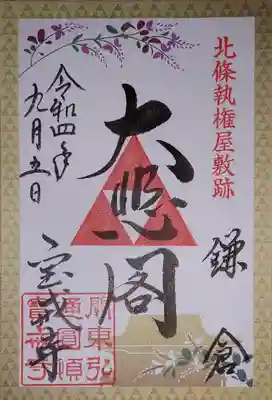 北條執権屋敷跡
鎌倉
大悲閣
宝戒寺
令和四年
九月五日
關東弘
通圓頓
寶戒寺